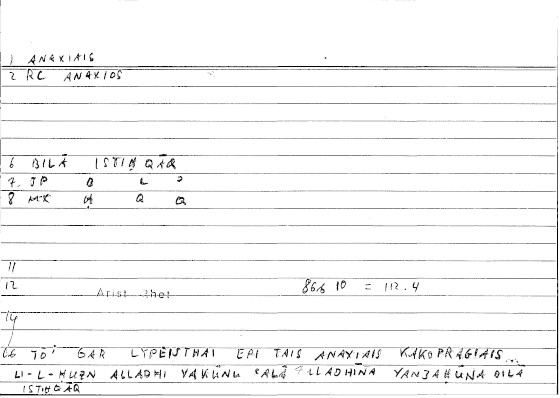 1 ANAXIAIS
2 RC ANAXIOS
6 BILĀ ISTIḤQĀQ
7. JP B L ɔ
8 MK Ḥ Q Q
11
12 Arist Rhet 86b 10 = 112.4
14
16 TO GAR LYPEISTHAI EPI TAIS ANAXIAIS KAKOPRAGIAIS...
LI-L-ḤUZN ALLADHI YAKŪNU ʿALĀ ALLADHĪNA YANJAḤŪNA BILĀ
ISTIḤQĀQ